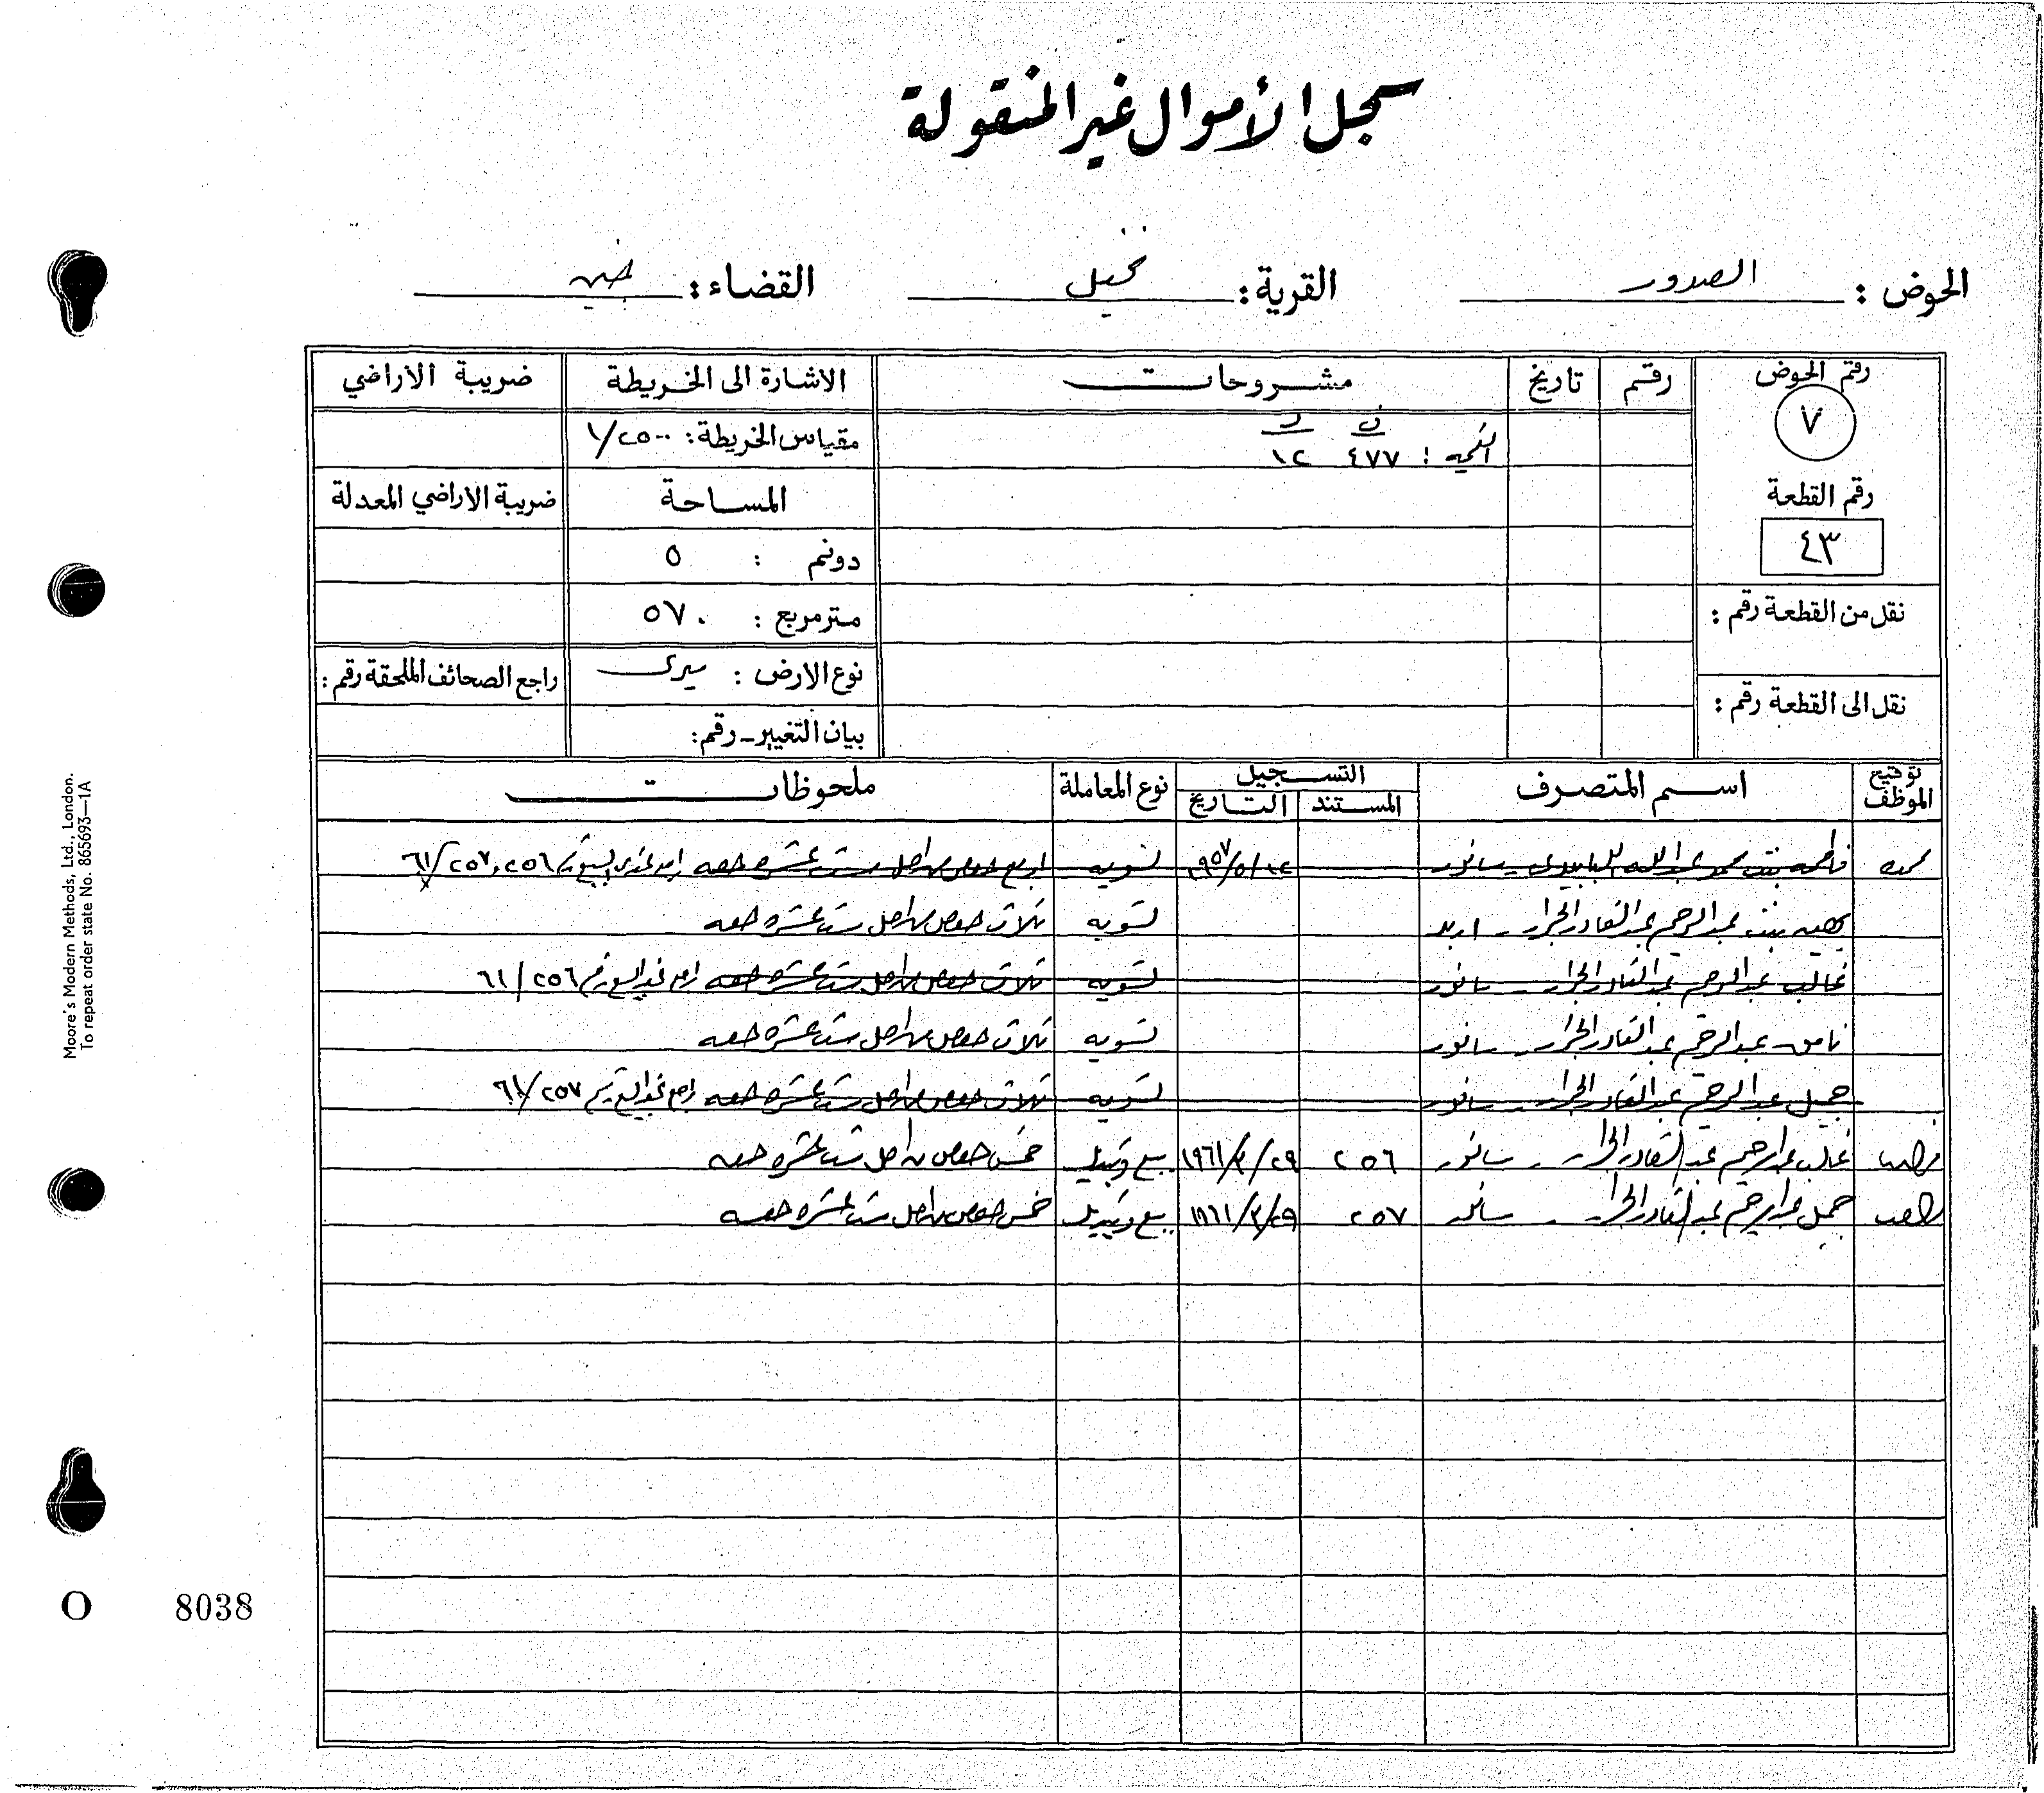 سجل الأموال غير المنقولة
الحوض : الصدور القرية : القضاء : جنين
رقم الحوض رقم تاريخ مشروحات الاشارة الى الخريطة ضريبة الاراضي
٧
ف د
القيمة : ٤٧٧ ١٢
مقياس الخريطة : ١/٢٥٠٠
رقم القطعة المساحة ضريبة الاراضي المعدلة
٤٣ دونم : ٥
نقل من القطعة رقم : متر مربع : ٥٧٠
نوع الارض : ميري راجع الصحائف الملحقة رقم :
نقل الى القطعة رقم : بيان التغيير - رقم :
توقيع الموظف اسم المتصرف التسجيل نوع المعاملة ملحوظات
المستند التاريخ
فاطمه بنت محمد عبدالله - سانور تسويه اربع حصص من اصل ست عشره حصه ٢٥٦، ٢٥٧/٦١
بنت عبدالرحيم عبدالقادر الجرار - اربد تسويه ثلاث حصص من اصل ست عشره حصه
غالب عبدالرحيم عبدالقادر الجرار - سانور تسويه ثلاث حصص من اصل ست عشره حصه راجع عقد البيع رقم ٢٥٦/٦١
عبدالرحيم عبدالقادر الجرار - سانور تسويه ثلاث حصص من اصل ست عشره حصه
جميل عبدالرحيم عبدالقادر الجرار - سانور تسويه ثلاث حصص من اصل ست عشره حصه راجع عقد البيع رقم ٢٥٧/٦١
غالب عبدالرحيم عبدالقادر الجرار - سانور ٢٥٦ ١٩٦١/٣/٢٩ بيع وتبديل خمس حصص من اصل ست عشره حصه
جميل عبدالرحيم عبدالقادر الجرار - سانور ٢٥٧ ١٩٦١/٣/٢٩ بيع وتبديل خمس حصص من اصل ست عشره حصه
Moore's Modern Methods, Ltd., London.
To repeat order state No. 865693—1A
O 8038